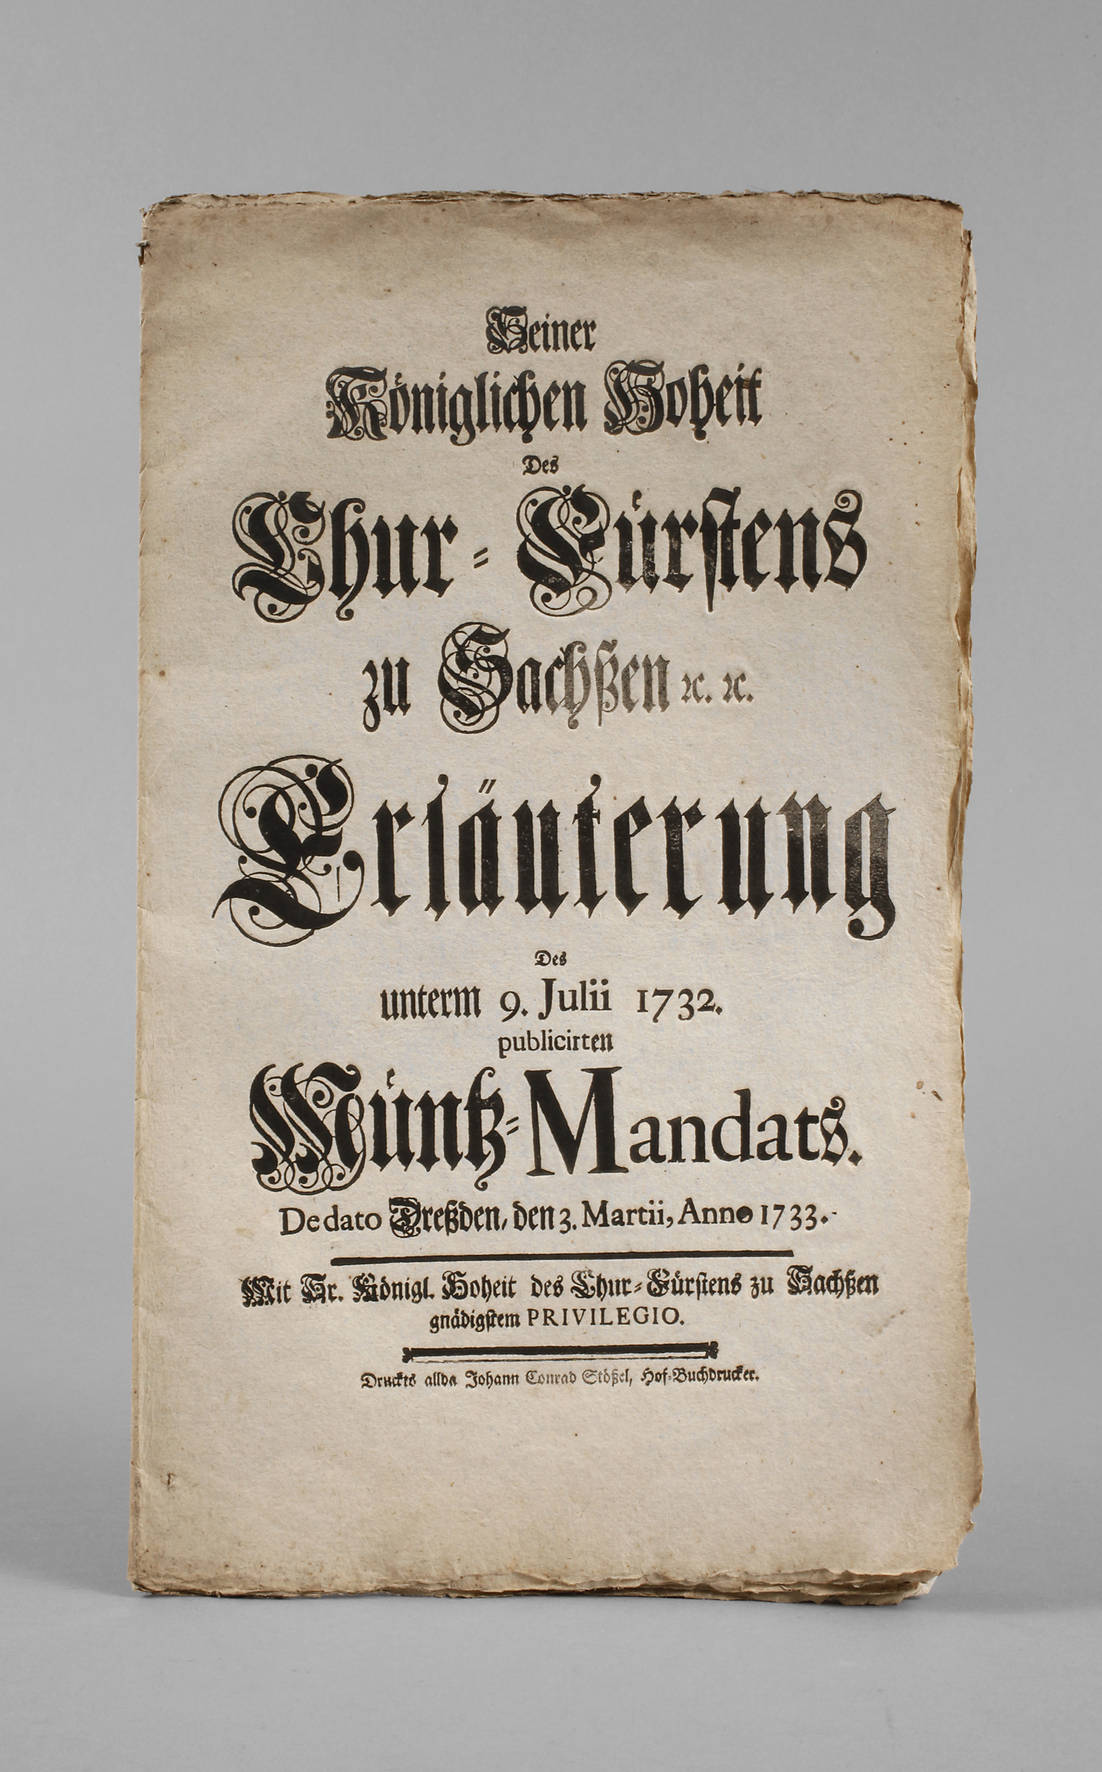 Seiner
Königlichen Hoheit
Des
Chur-Fürstens
zu Sachßen ꝛc. ꝛc.
Erläuterung
Des
unterm 9. Julii 1732.
publicirten
Müntz-Mandats.
De dato Dreßden, den 3. Martii, Anno 1733.
Mit Sr. Königl. Hoheit des Chur-Fürstens zu Sachßen
gnädigstem PRIVILEGIO.
Druckts allda Johann Conrad Stößel, Hof-Buchdrucker.